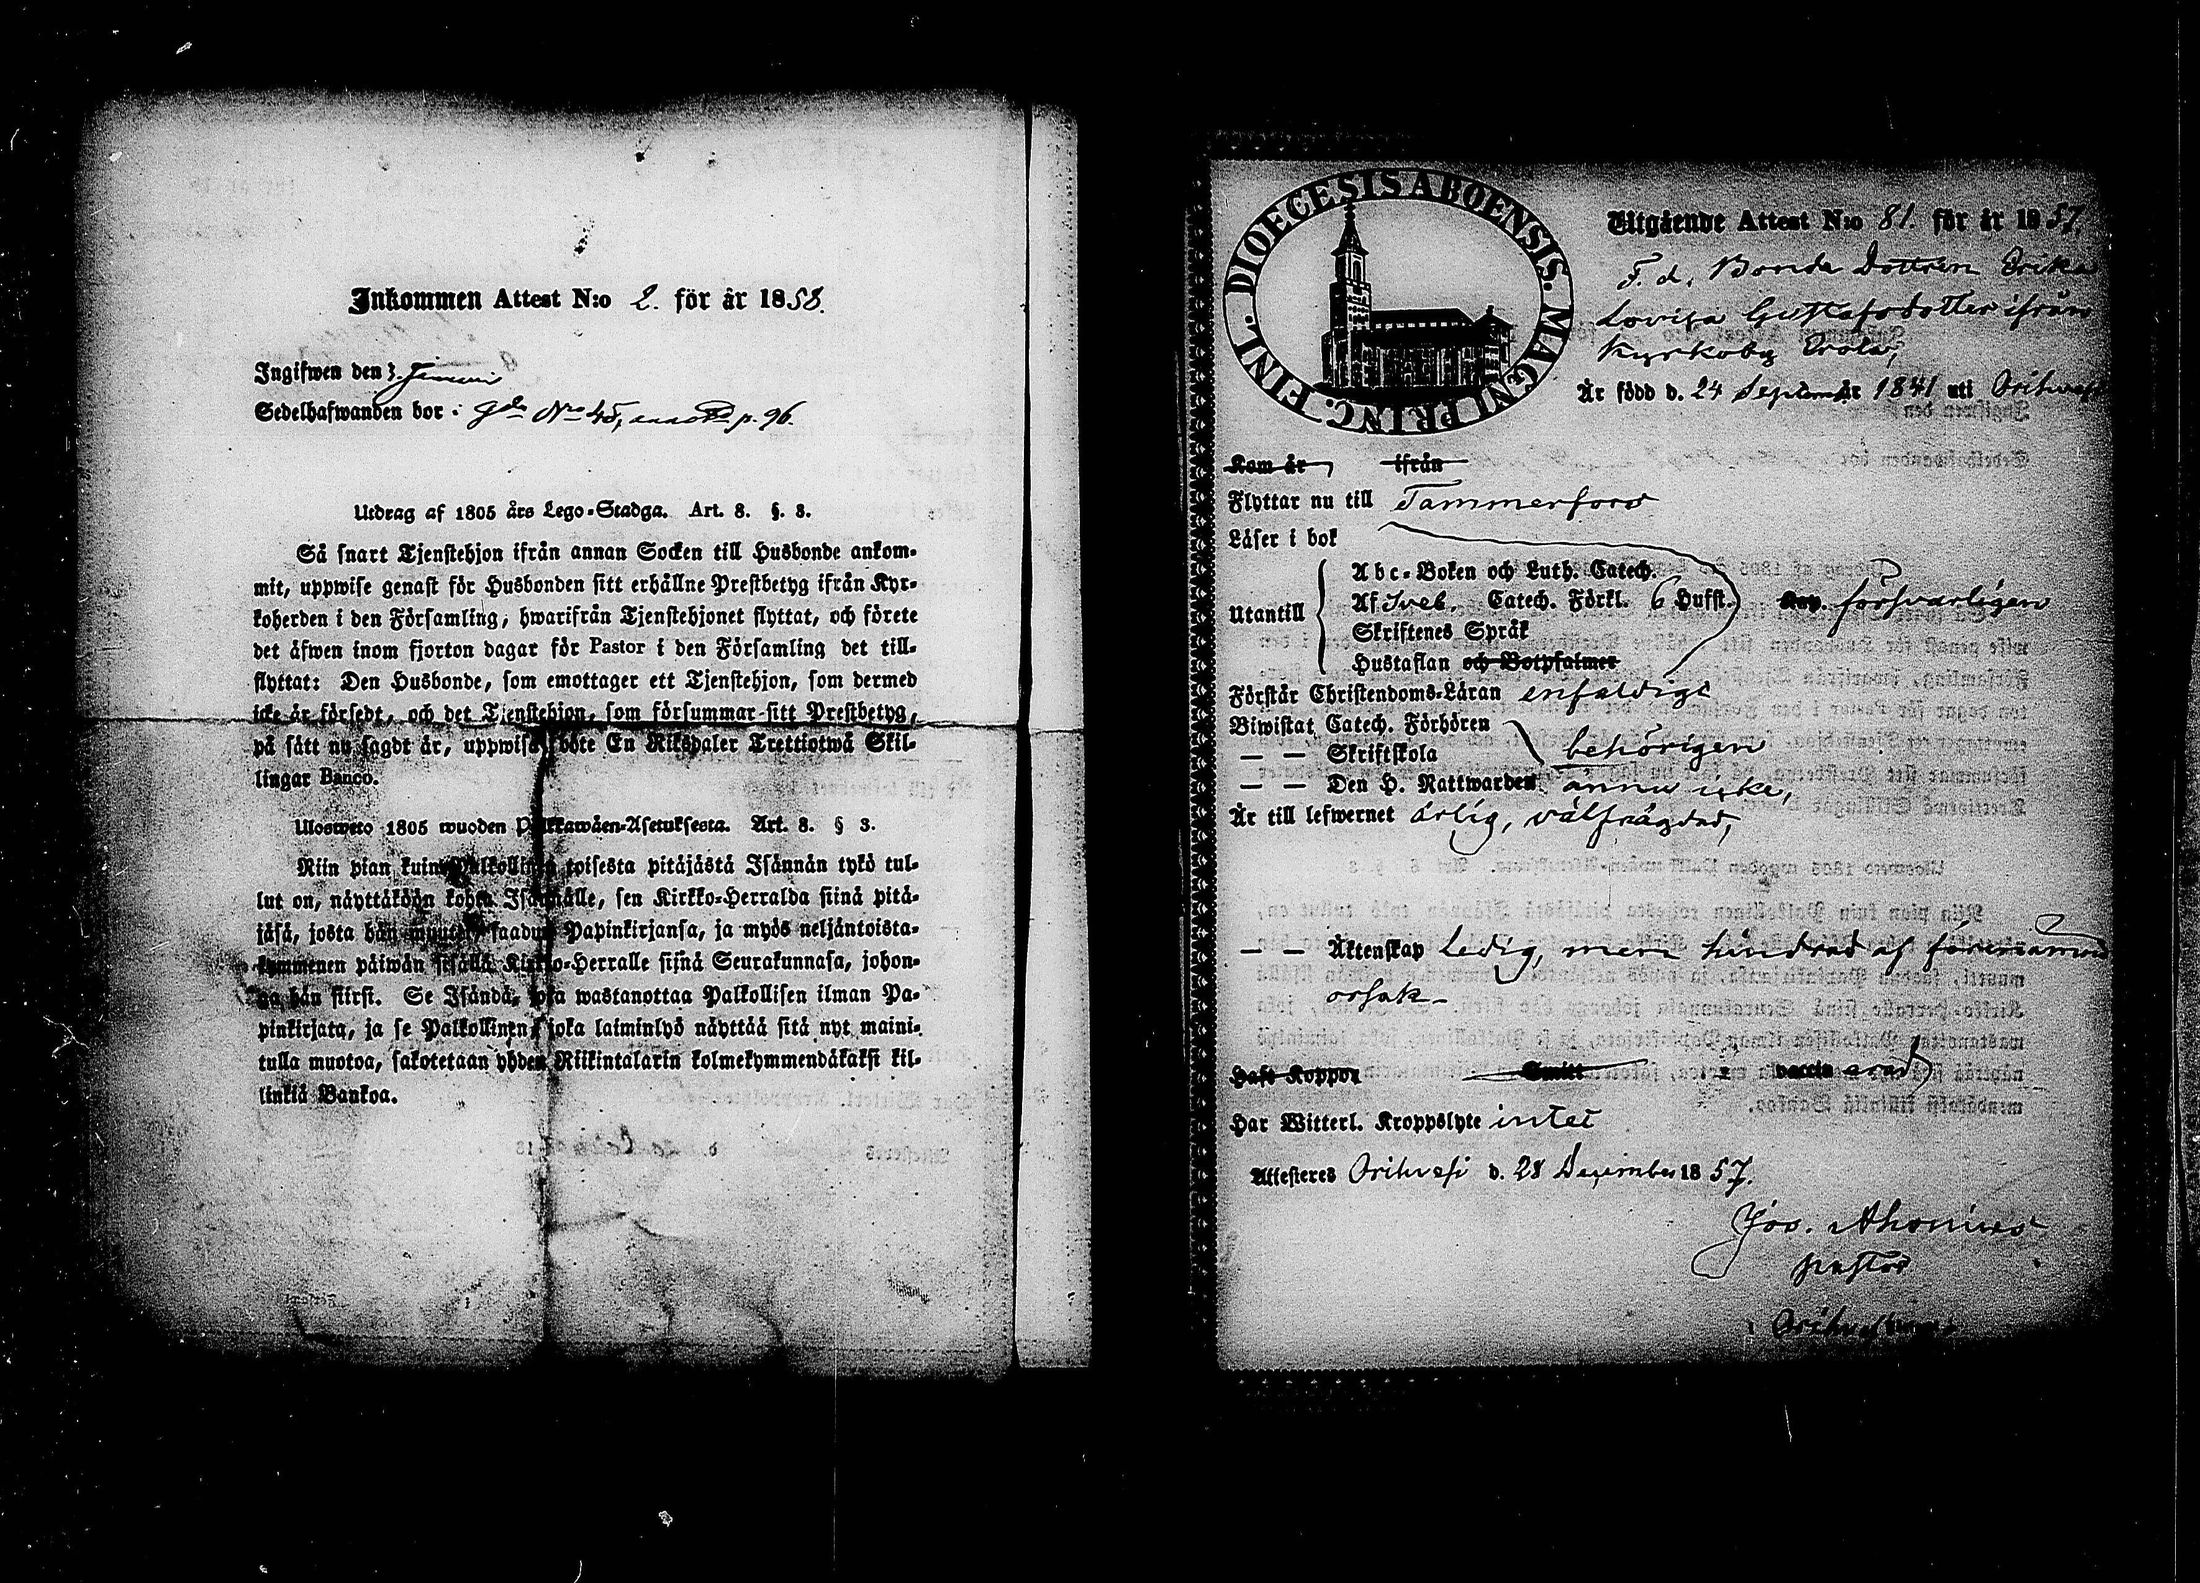 Inkommen Attest N:o 2. för år 1858.
Ingifwen den 3. Januari
Sedelhafwanden bor i gde No 45, annotd p. 96.
Utdrag af 1805 års Lego-Stadga. Art. 8. §. 3.
Så snart Tjenstehjon ifrån annan Socken till Husbonde ankom-
mit, uppwise genast för Husbonden sitt erhållne Prestbetyg ifrån Kyr-
koherden i den Församling, hwarifrån Tjenstehjonet flyttat, och förete
det äfwen inom fjorton dagar för Pastor i den Församling det till-
flyttat: Den Husbonde, som emottager ett Tjenstehjon, som dermed
icke är försedt, och det Tjenstehjon, som försummar sitt Prestbetyg,
på sätt nu sagdt är, uppwisa, böte En Riksdaler Trettiotwå Skil-
lingar Banco.
Ulosweto 1805 wuoden Palkkawäen-Asetuksesta. Art. 8. § 3.
Niin pian kuin Palkollinen toisesta pitäjästä Isännän tykö tul-
lut on, näyttäköön kohta Isännälle, sen Kirkko-Herralda siinä pitä-
jäsä, josta hän muutti, saadun Papinkirjansa, ja myös neljäntoista-
kymmenen päiwän sisällä Kirkko-Herralle siinä Seurakunnasa, johon-
ga hän siirsi. Se Isändä, joka wastanottaa Palkollisen ilman Pa-
pinkirjata, ja se Palkollinen, joka laiminlyö näyttää sitä nyt maini-
tulla muotoa, sakotetaan yhden Riikintalarin kolmekymmendäkaksi kil-
linkiä Bankoa.
DIOECESIS ABOENSIS. MAGNI PRINC. FINL.
Utgående Attest N:o 81. för år 1857.
F. d. Bonde Dottren Erika
Lovisa Gustafsdotter ifrån
Kyrkoby Erola,
Är född d. 24 September 1841 uti Orihvesi
Kom år ifrån
Flyttar nu till Tammerfors
Läser i bok
Abc-Boken och Luth. Catech.
Utantill Af Sveb. Catech. Förkl. 6 Hufst. försvarligen
Skriftenes Språk
Hustaflan och Botpsalmer
Förstår Christendoms-Läran enfaldigt
Biwistat Catech. Förhören
— — Skriftskola behörigen
— — Den H. Nattwarden ännu icke,
Är till lefwernet ärlig, välfrägdad,
— — Äktenskap Ledig, men hindrad af förenämnd
orsak —
Haft Koppor Smitt vaccinerad
Har Witterl. Kroppslyte intet
Attesteres Orihvesi d. 28 December 1857.
Jos. Ahonius
pastor
i Orihvesi